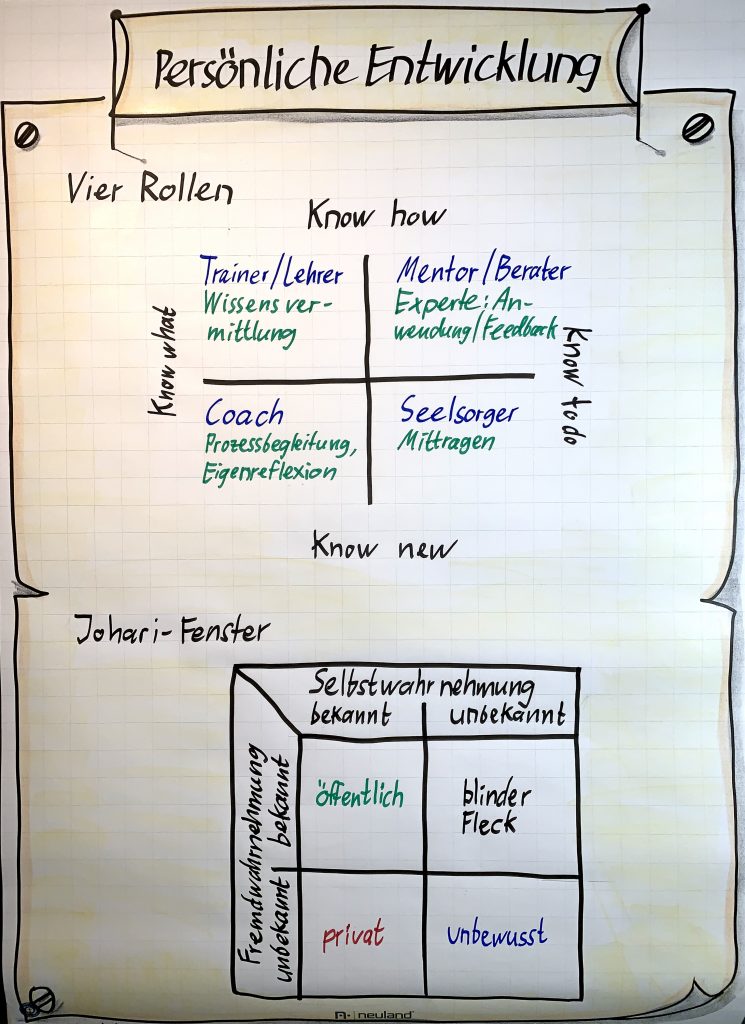 Persönliche Entwicklung
Vier Rollen
Know how
Know what
Trainer/Lehrer
Wissensver-
mittlung
Mentor/Berater
Experte: An-
wendung/Feedback
Know to do
Coach
Prozessbegleitung,
Eigenreflexion
Seelsorger
Mittragen
Know new
Johari-Fenster
Selbstwahrnehmung
bekannt
unbekannt
Fremdwahrnehmung
bekannt
öffentlich
blinder
Fleck
unbekannt
privat
unbewusst
n- | neuland